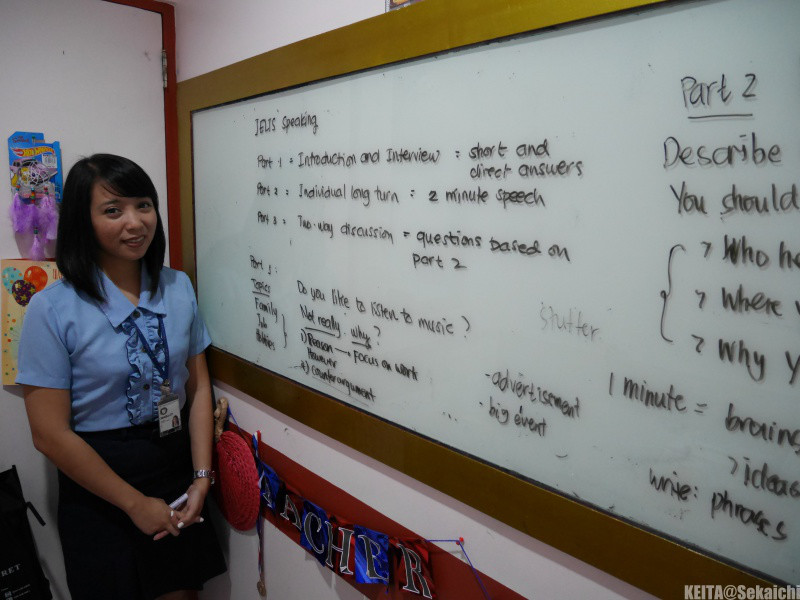 IELTS Speaking
Part 1 = Introduction and Interview = short and
direct answers
Part 2 = Individual long turn = 2 minute speech
Part 3 = Two-way discussion = questions based on
part 2
Part 1:
Topics
Family
Job
Hobbies
Do you like to listen to music?
Not really, why?
i) Reason → Focus on work
However
ii) counterargument
stutter
- advertisement
- big event
Part 2
Describe
You should
> Who he
> where
> why y
1 minute = brains
> ideas
write: phrases
Hot Wheels
ACHER
RET
KEITA@Sekaichi